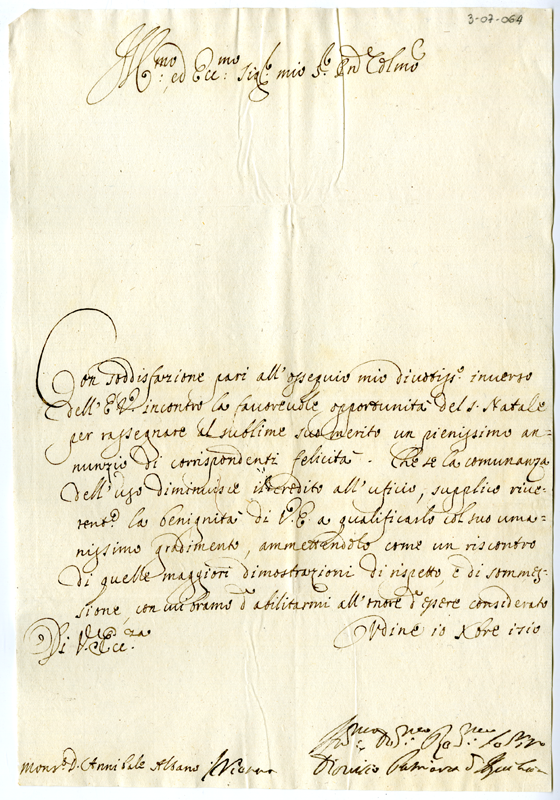 3-07-064
Ill:mo, ed Ecc:mo Sig:r mio S:r Pnd Colmo
Con soddisfazione pari all' ossequio mio divotiss:o inverso
dell' E.V. incontro la favorevole opportunità del S. Natale
per rassegnare al sublime suo merito un pienissimo an=
nunzio di corrispondenti felicità. Che se la comunanza
dell' uso diminuisce il credito all' uficio, supplico rive=
rent:e la benignità di V.E. a qualificarlo col suo uma=
nissimo gradimento, ammettendolo come un riscontro
di quelle maggiori dimostrazioni di rispetto, e di sommes=
sione con cui bramo d' abilitarmi all' onore d' essere considerato
Di V. Ecc:za
Udine 10 Xbre 1710
Dionisio Patriarca d' Aquileia
Mons:r D. Annibale Albano